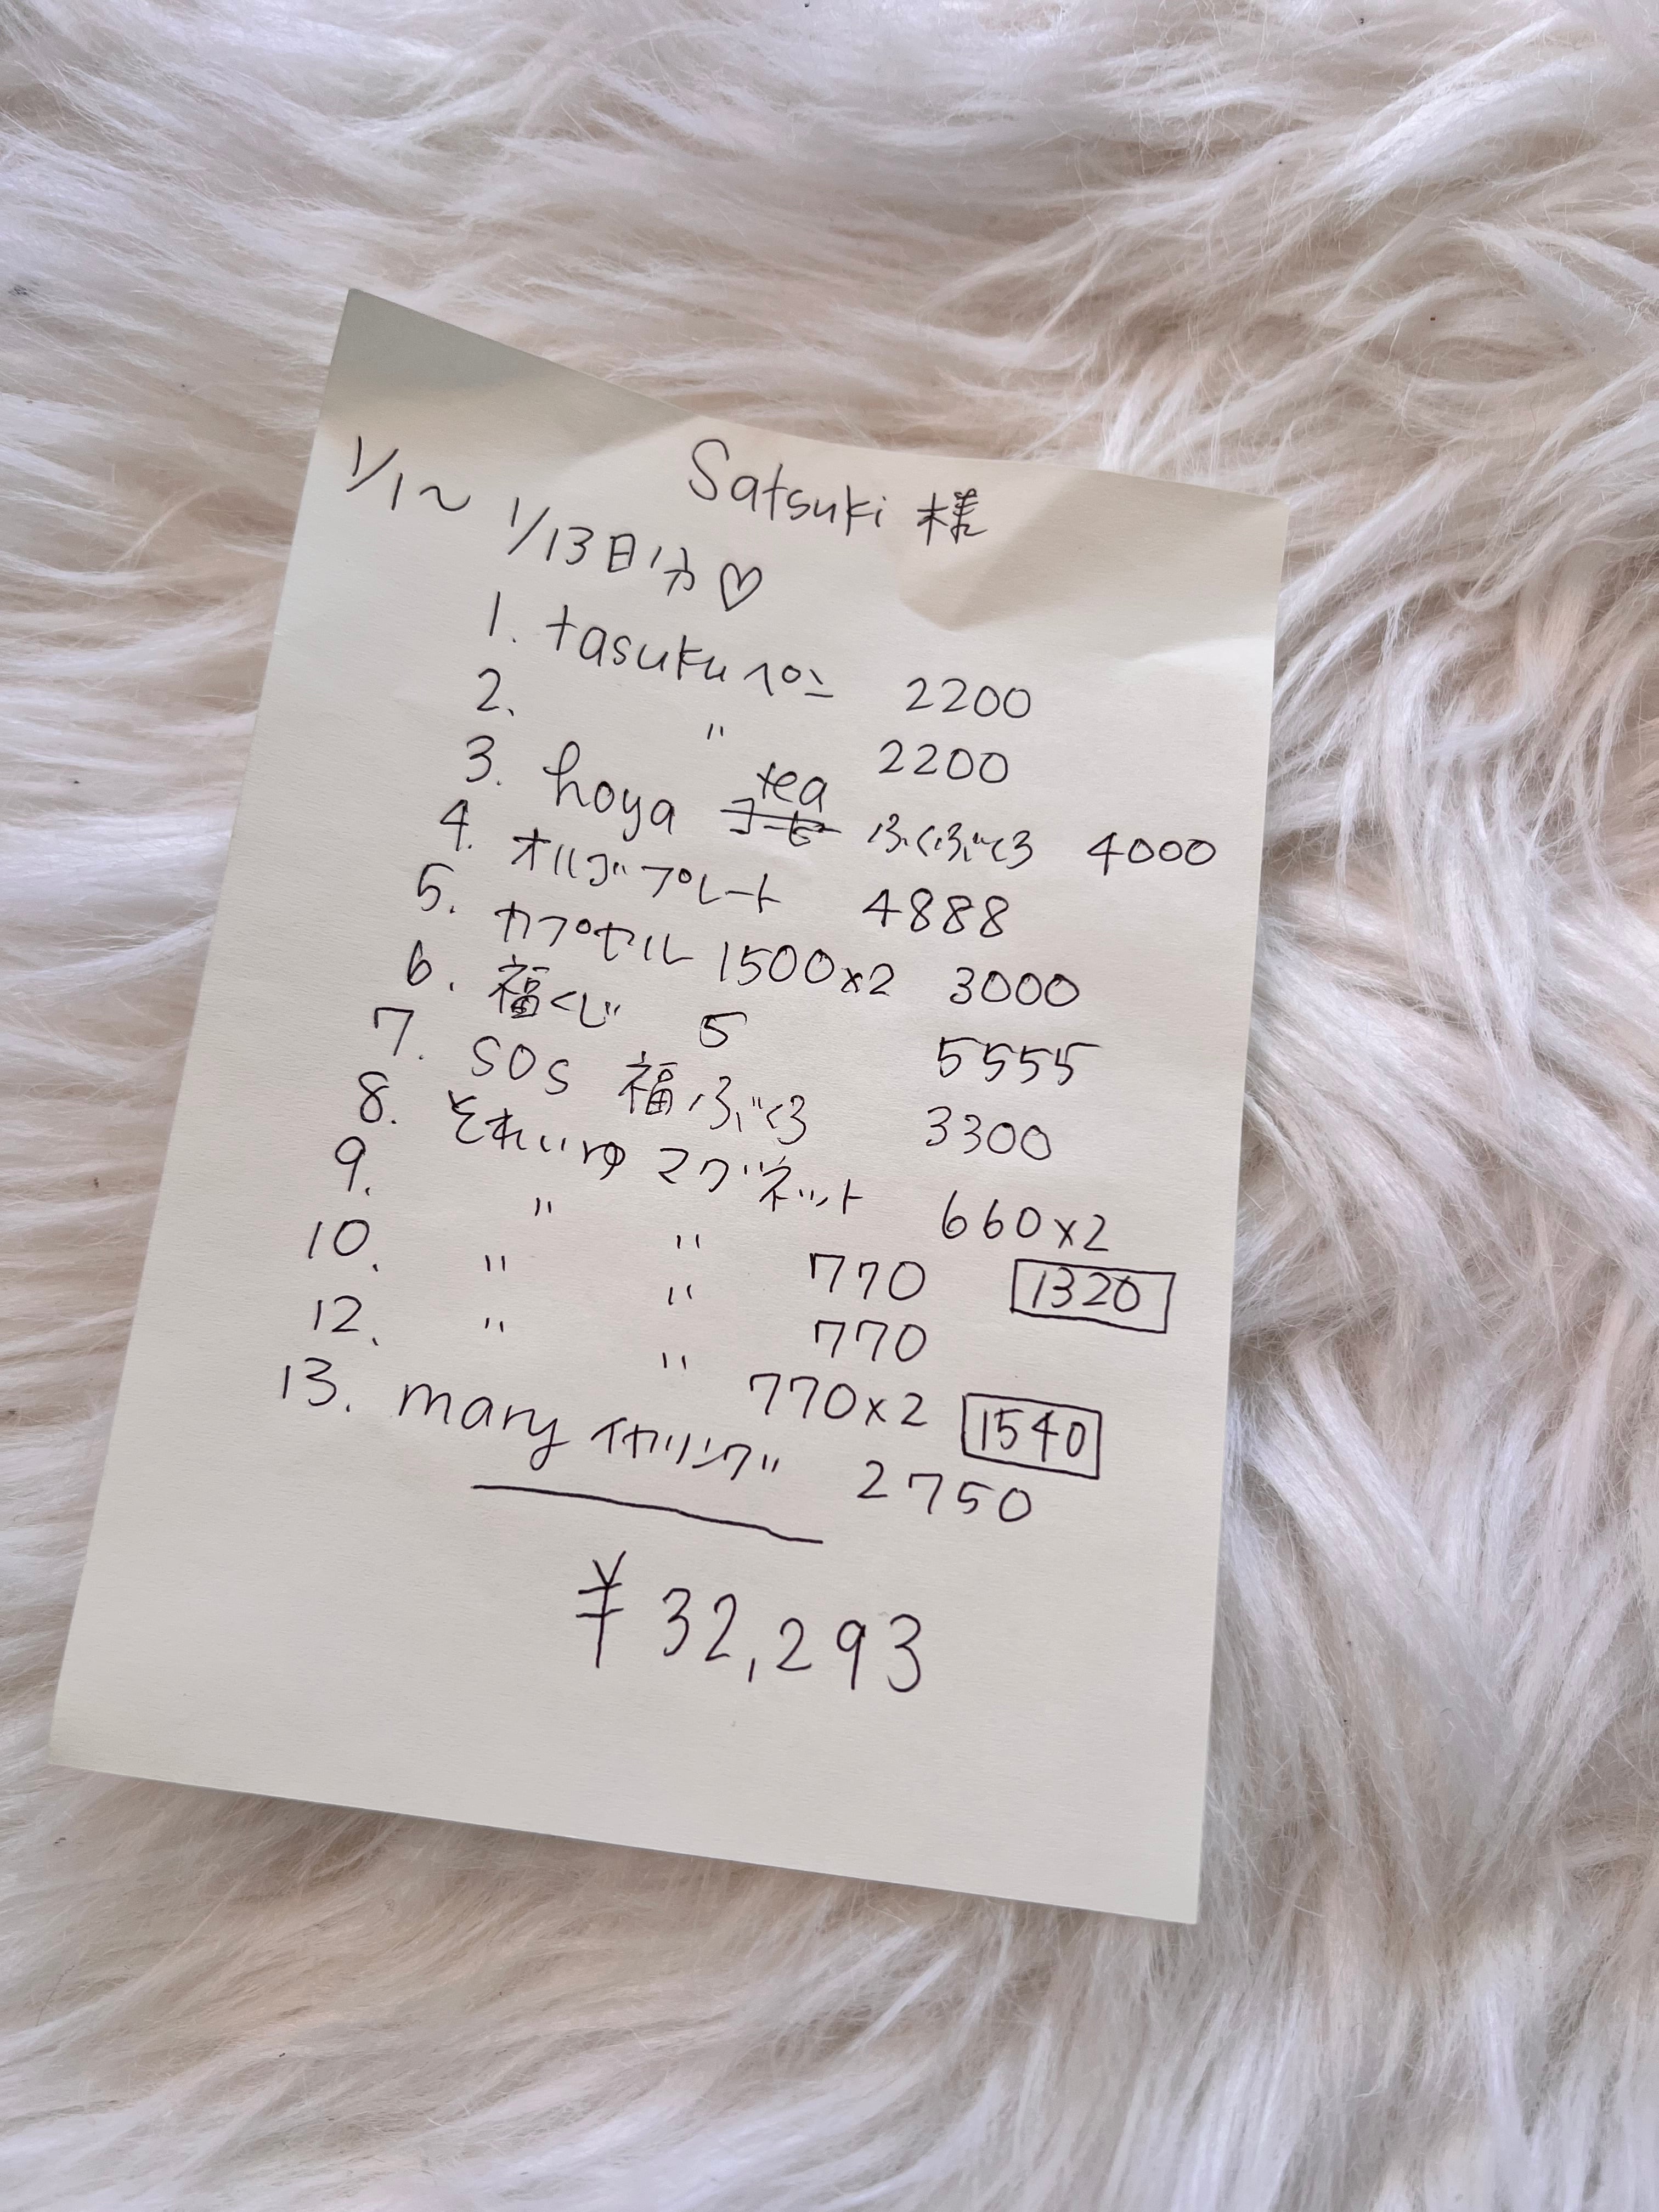 Satsuki 様
1/1〜1/13日分♡
1. tasukuペン 2200
2. 〃 2200
3. hoya コーヒー tea ふくぶくろ 4000
4. オルゴプレート 4888
5. カプセル 1500×2 3000
6. 福くじ 5 5555
7. SOS 福ぶくろ 3300
8. それいゆ マグネット 660×2 1320
9. 〃 〃 770
10. 〃 〃 770
12. 〃 〃 770×2 1540
13. mary イヤリング 2750
¥32,293